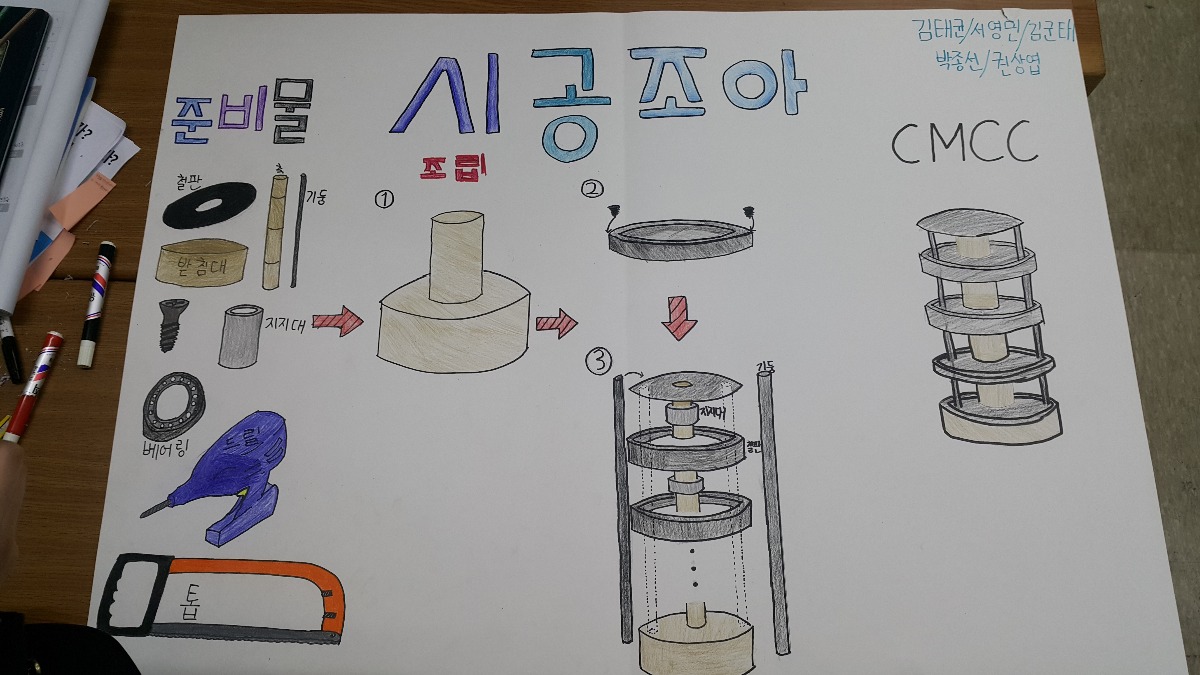 김태권/서영민/김군태
박종선/권상엽
시공조아
준비물
CMCC
조립
철판
축
기둥
받침대
지지대
베어링
드릴
톱
①
②
③
기둥
지지대